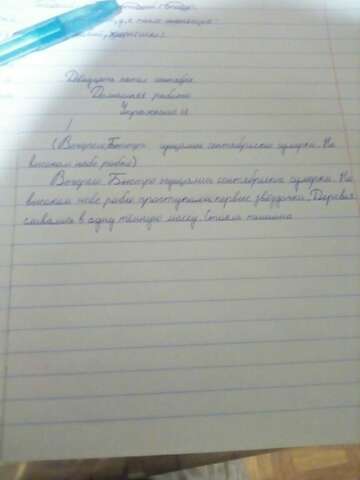 Двадцать пятое сентября
Домашняя работа
Упражнение
(Вечерело. Быстро сгущались сентябрьские сумерки. На
высоком небе робко)
Вечерело. Быстро сгущались сентябрьские сумерки. На
высоком небе робко проступали первые звёздочки. Деревья
сливались в одну тёмную массу. Стояла тишина